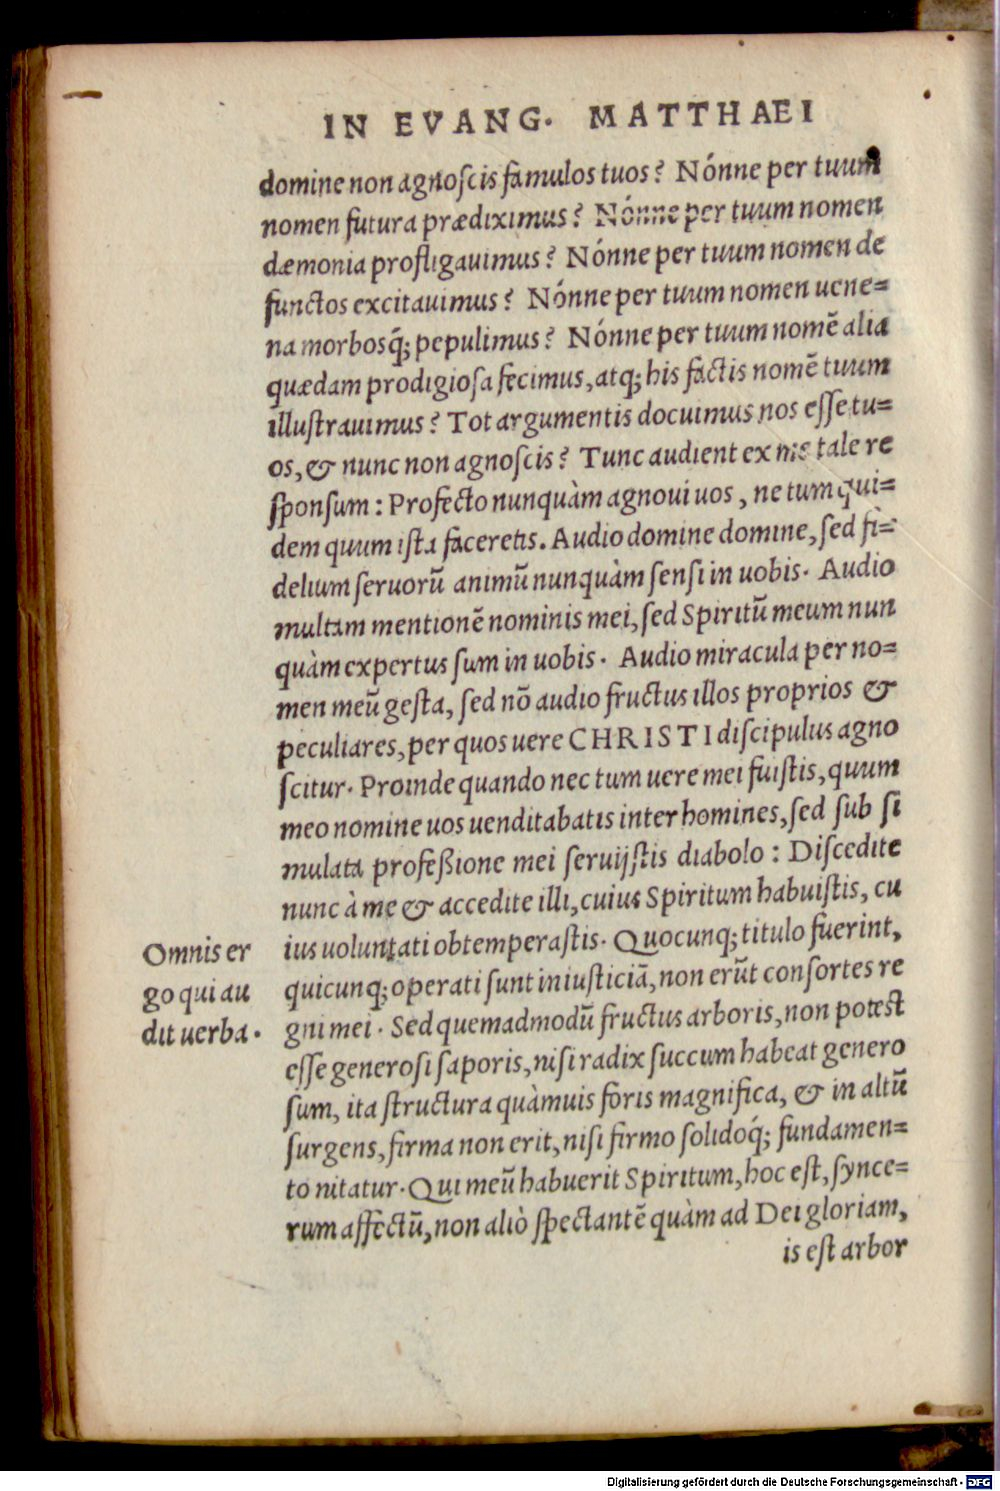 IN EVANG. MATTHAEI
domine non agnoſcis famulos tuos? Nónne per tuum
nomen futura prædiximus? Nónne per tuum nomen
dæmonia profligauimus? Nónne per tuum nomen de
functos excitauimus? Nónne per tuum nomen uene=
na morbosq́; pepulimus? Nónne per tuum nomē alia
quædam prodigioſa fecimus, atq; his factis nomē tuum
illuſtrauimus? Tot argumentis docuimus nos eſſe tu=
os, & nunc non agnoſcis? Tunc audient ex me tale re
ſponſum: Profecto nunquàm agnoui uos, ne tum qui=
dem quum iſta faceretis. Audio domine domine, ſed fi=
delium ſeruorū animū nunquàm ſenſi in uobis. Audio
multam mentionē nominis mei, ſed Spiritū meum nun
quàm expertus ſum in uobis. Audio miracula per no=
men meū geſta, ſed nō audio fructus illos proprios &
peculiares, per quos uere CHRISTI diſcipulus agno
ſcitur. Proinde quando nec tum uere mei fuiſtis, quum
meo nomine uos uenditabatis inter homines, ſed ſub ſi
mulata profeßione mei ſeruijſtis diabolo: Diſcedite
nunc à me & accedite illi, cuius Spiritum habuiſtis, cu
ius uoluntati obtemperaſtis. Quocunq; titulo fuerint,
quicunq; operati ſunt iniuſticiā, non erūt conſortes re
gni mei. Sed quemadmodū fructus arboris, non poteſt
eſſe generoſi ſaporis, niſi radix ſuccum habeat genero
ſum, ita ſtructura quàmuis foris magnifica, & in altū
ſurgens, firma non erit, niſi firmo ſolidoq́; fundamen=
to nitatur. Qui meū habuerit Spiritum, hoc eſt, ſynce=
rum affectū, non aliò ſpectantē quàm ad Dei gloriam,
is eſt arbor
Omnis er
go qui au
dit uerba.
Digitalisierung gefördert durch die Deutsche Forschungsgemeinschaft - DFG